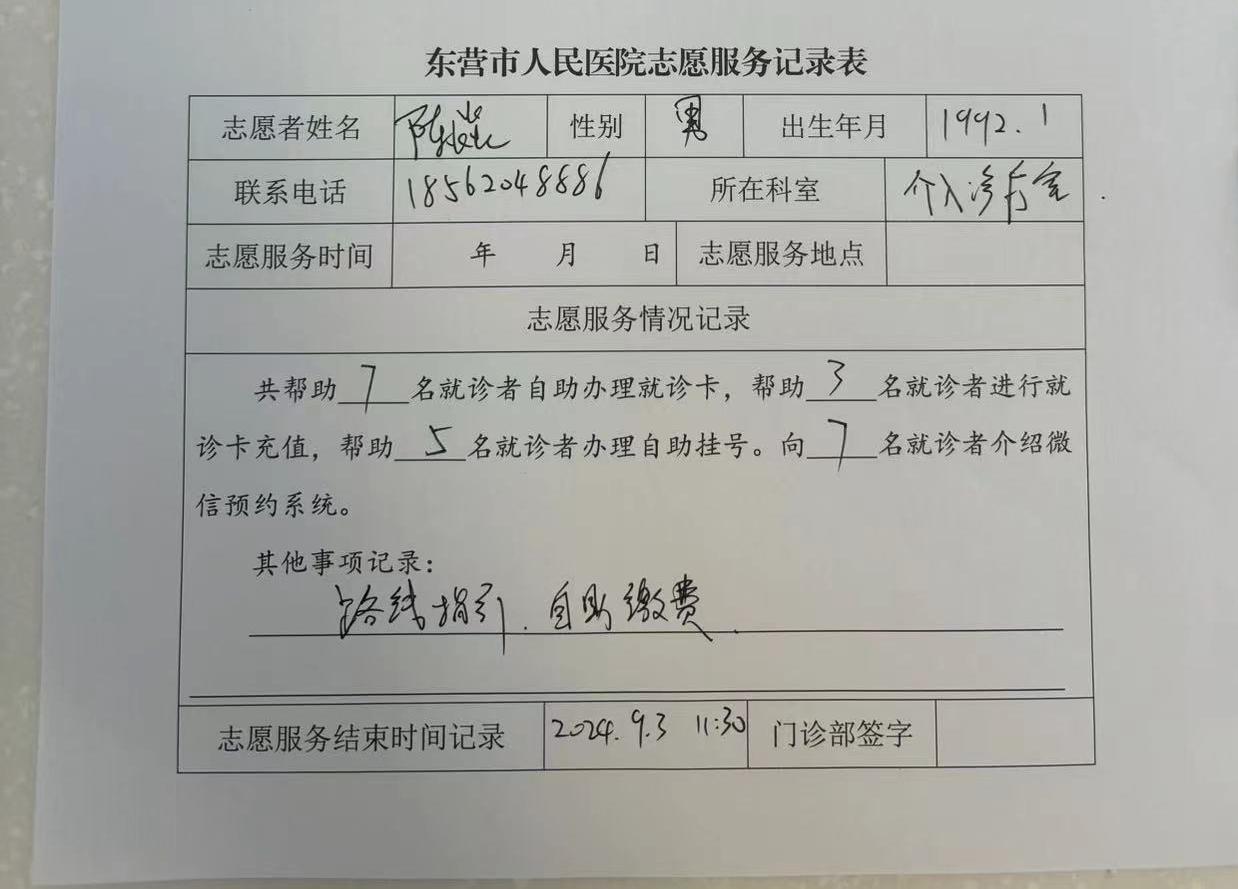 东营市人民医院志愿服务记录表
志愿者姓名 陈 性别 男 出生年月 1992.1
联系电话 18562048886 所在科室 介入诊疗室
志愿服务时间 年 月 日 志愿服务地点
志愿服务情况记录
共帮助 7 名就诊者自助办理就诊卡，帮助 3 名就诊者进行就
诊卡充值，帮助 5 名就诊者办理自助挂号。向 7 名就诊者介绍微
信预约系统。
其他事项记录：
路线指引. 自助缴费.
志愿服务结束时间记录 2024.9.3 11:30 门诊部签字